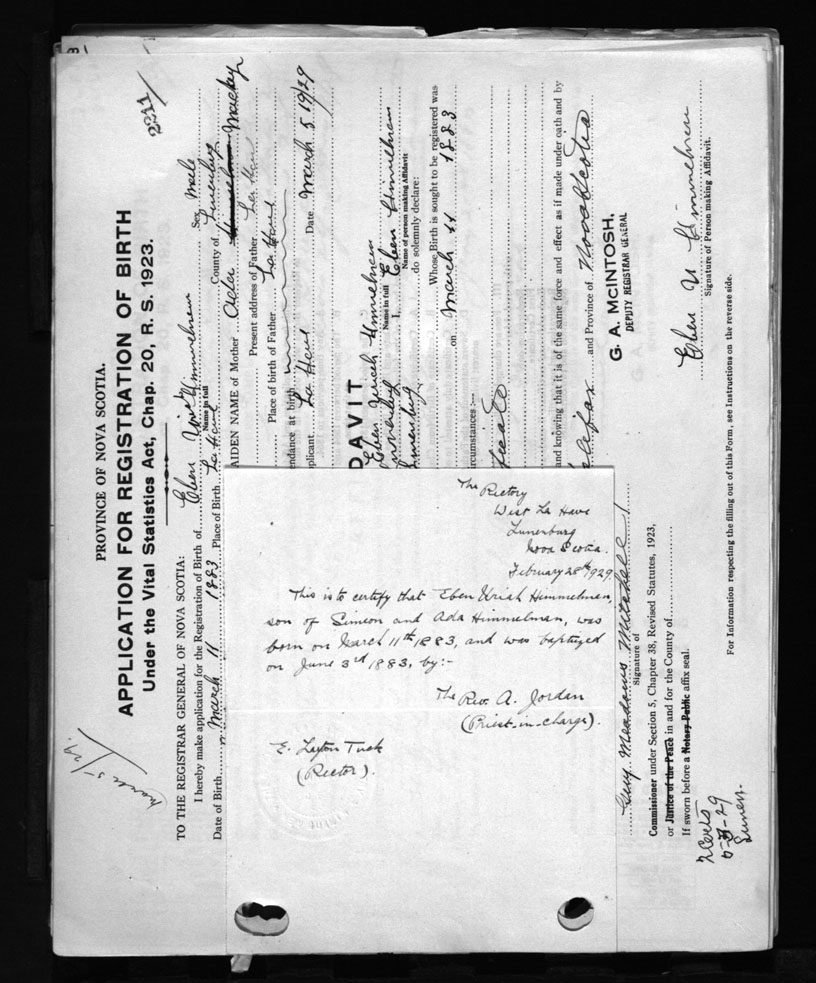 2241
PROVINCE OF NOVA SCOTIA.
APPLICATION FOR REGISTRATION OF BIRTH
Under the Vital Statistics Act, Chap. 20, R. S. 1923.
March 5/29.
TO THE REGISTRAR GENERAL OF NOVA SCOTIA:
I hereby make application for the Registration of Birth of Eben Himmelman Sex Male
Name in full
Date of Birth March 11 1883 Place of Birth La Have County of Lunenburg
AIDEN NAME of Mother Ada Mackay
Present address of Father La Have
Place of birth of Father La Have
endance at birth
plicant. La Have Date March 5 19/29
DAVIT
Eben Uriah Himmelman
Name in full
I, Eben Himmelman
Name of person making Affidavit
Lunenburg do solemnly declare:
Whose Birth is sought to be registered was
on March 11 1883
rcumstances:—
and knowing that it is of the same force and effect as if made under oath and by
lifax and Province of Nova Scotia
G. A. McINTOSH,
DEPUTY REGISTRAR GENERAL
Eben U Himmelman
Signature of Person making Affidavit.
Guy Meadows Mitchell
Signature of
Commissioner under Section 5, Chapter 38, Revised Statutes, 1923,
or Justice of the Peace in and for the County of
If sworn before a Notary Public affix seal.
For Information respecting the filling out of this Form, see Instructions on the reverse side.
The Rectory
West La Have
Lunenburg
Nova Scotia.
February 28th 1929.
This is to certify that Eben Uriah Himmelman,
son of Simeon and Ada Himmelman, was
born on March 11th 1883, and was baptized
on June 3rd 1883, by:-
The Rev. A. Jordan
(Priest-in-charge).
E. Layton Tuck
(Rector).